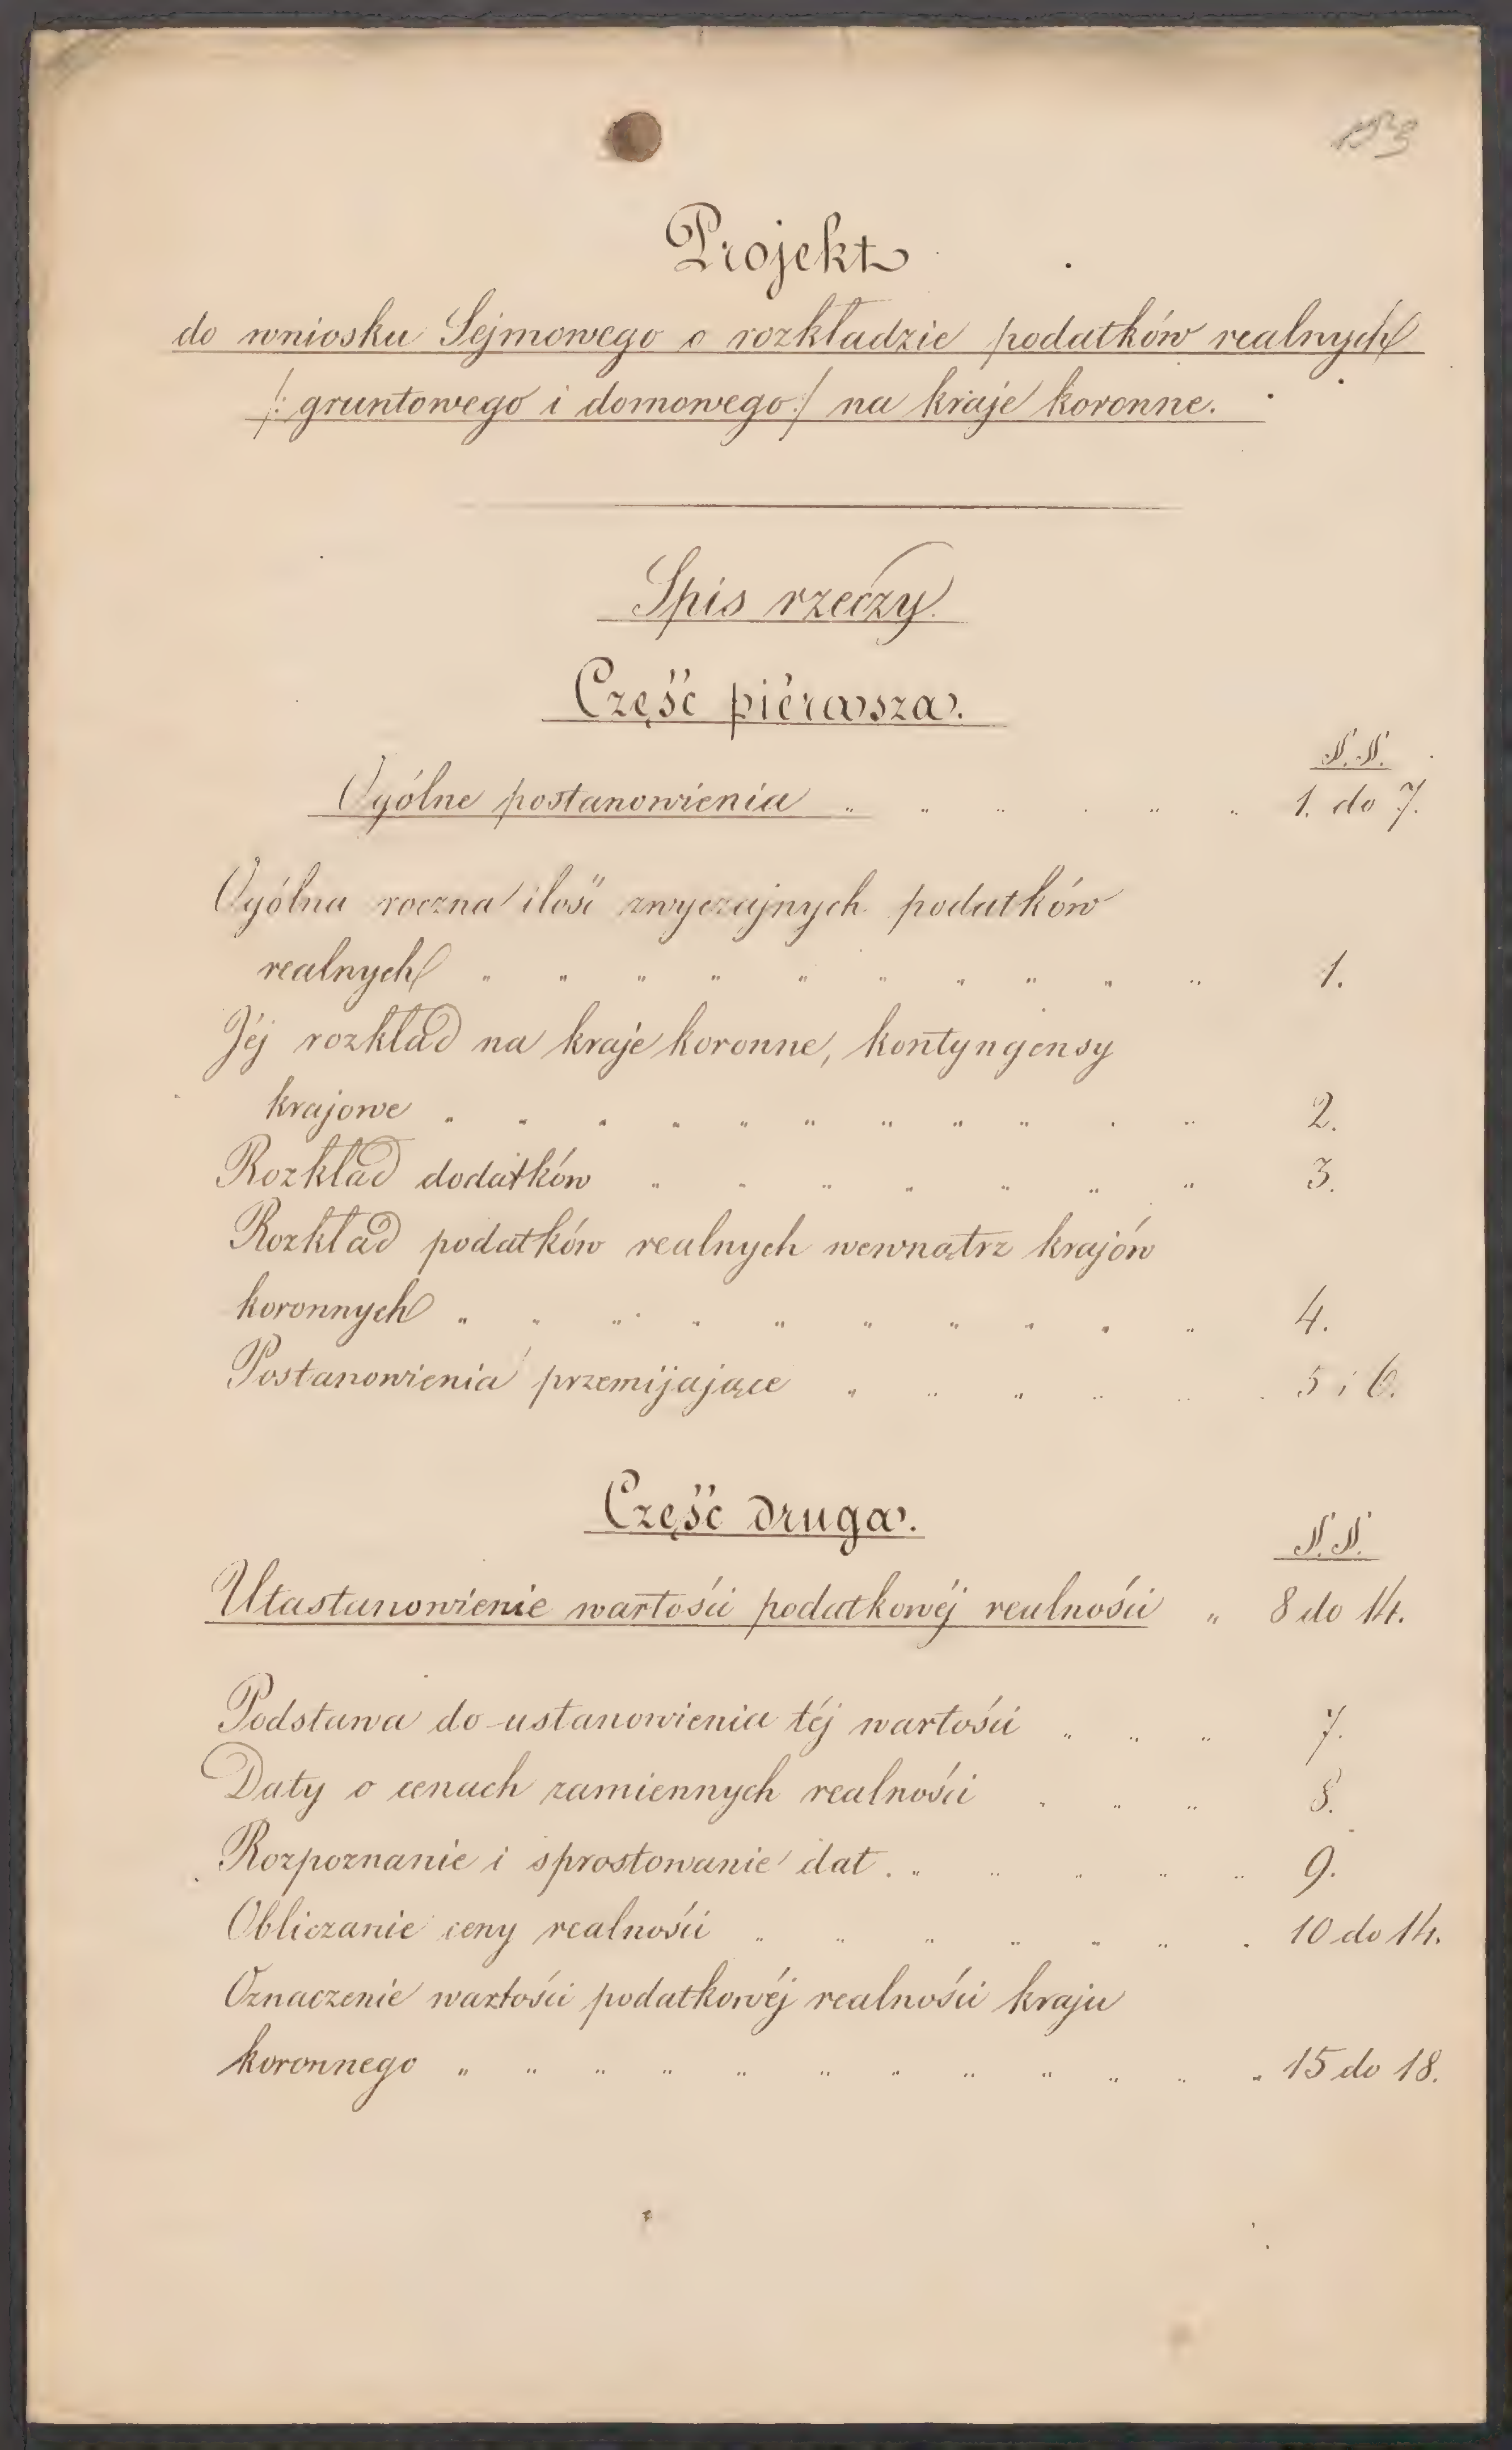 153
Projekt
do wniosku Sejmowego o rozkładzie podatków realnych
/: gruntowego i domowego :/ na kraje koronne.
Spis rzeczy.
Część piérwsza.
§. §.
Ogólne postanowienia „ „ „ „ „ „ 1. do 7.
Ogólna roczna ilość zwyczajnych podatków
realnych „ „ „ „ „ „ „ „ „ „ 1.
Jéj rozkład na kraje koronne, kontyngensy
krajowe „ „ „ „ „ „ „ „ „ „ „ 2.
Rozkład dodatków „ „ „ „ „ „ „ 3.
Rozkład podatków realnych wewnątrz krajów
koronnych „ „ „ „ „ „ „ „ „ „ 4.
Postanowienia przemijające „ „ „ „ „ „ 5 i 6.
Część druga.
§. §.
Utastanowienie wartości podatkowéj realności „ 8 do 14.
Podstawa do ustanowienia téj wartości „ „ „ 7.
Daty o cenach zamiennych realności „ „ „ 8.
Rozpoznanie i sprostowanie dat. „ „ „ „ „ 9.
Obliczanie ceny realności „ „ „ „ „ „ „ 10 do 14.
Oznaczenie wartości podatkowéj realności kraju
koronnego „ „ „ „ „ „ „ „ „ „ „ „ 15 do 18.